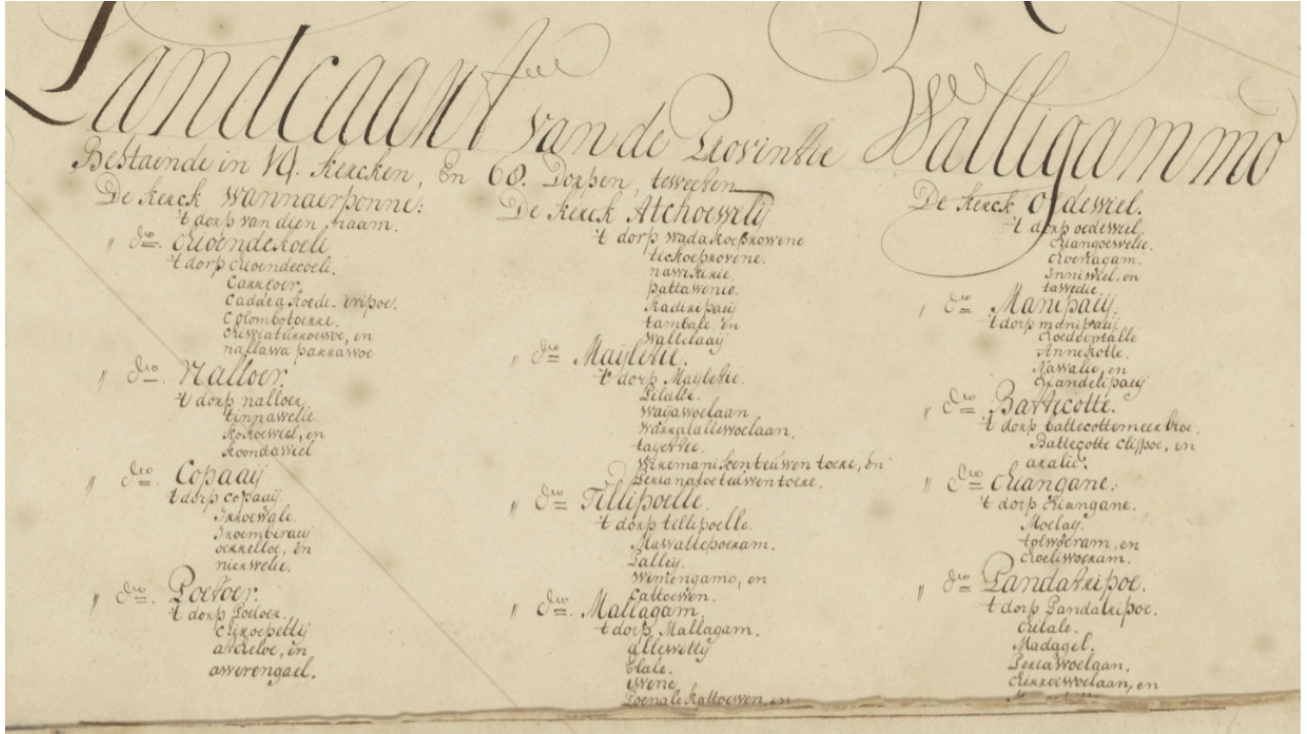 Landcaart van de Provintie Walligammo
Bestaende in 14. kercken, En 68. Dorpen, teweeten
De kerck wannaerponne:
't dorp van dien naam.
" do. Chioendekoeli
't dorp chioendecoeli.
Cannoer.
Colombotorre.
nallawa parrawoe
" do. Nalloer.
't dorp nalloer.
tinnawelie.
kokoewiel, en
koondawiel
" do. Copaaij
't dorp copaaij.
Inroewale.
Inoembiraeij
oerreloe, en
nierwelie.
" do. Poetoer.
't dorp Poetoer.
chiroepettij
atcheloe, en
awerengael.
De kerck Atchoewelij
't dorp wadakoeprowene
tickoeprovene.
nawikirie.
pattawenie.
kadiripaeij
tambale, en
wattelaaij
" do. Mayletie.
't dorp Mayletie.
Pelalie.
wayawoelaan
wannatallewoelaan.
tayettie.
" do. Tillipoelle.
't dorp tillipoelle.
Mawattepoeram.
Palley.
wimengamo, en
Cattoewen.
" do. Mallagam.
't dorp Mallagam.
allewitty
Elale.
ewene
Poenale kattoewen, en
De kerck Oedewiel.
't dorp oedewiel.
chiangoewelie.
croerlagam.
Inniwiel, en
tawedie.
" do. Manipaeij.
't dorp manipaeij.
Annekotte.
Nawalie, en
chandelipaeij
" do. Battecotte.
't dorp battecottemeer broe.
Battecotte clippoe, en
aralie.
" do. Chiangane.
't dorp chiangane.
Moelay.
tolwoeram, en
choeliwoeram.
" do. Pandatripoe.
't dorp Pandatripoe.
chilale.
Madagel.
Periawoelaan.
chinnoewoelaan, en